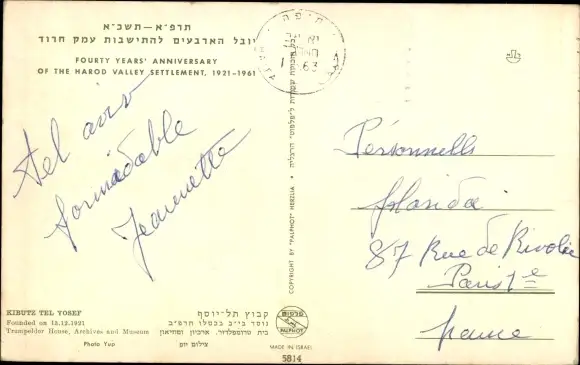 תרפ״א—תשכ״א
יובל הארבעים להתישבות עמק חרוד
FOURTY YEARS' ANNIVERSARY
OF THE HAROD VALLEY SETTLEMENT, 1921-1961
Tel aviv
formidable
Jeannette
KIBUTZ TEL YOSEF
Founded on 13.12.1921
Trumpeldor House, Archives and Museum
Photo Yup
קבוץ תל-יוסף
נוסד בי״ב בכסלו תרפ״ב
בית טרומפלדור, ארכיון ומוזיאון
צילום יופ
COPYRIGHT BY "PALPHOT" HERZLIA •
חיפה
63
פלפוט
PALPHOT
MADE IN ISRAEL
5814
Personnells
87 Rue de Rivolie
Paris 1e
france